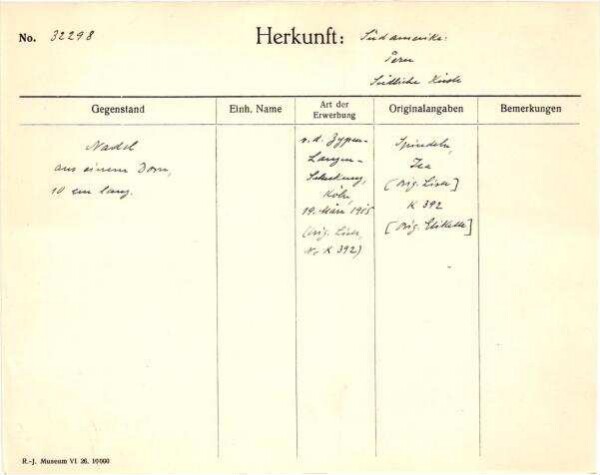 No. 32298
Herkunft: Südamerika:
Peru
Südliche Küste
Gegenstand
Einh. Name
Art der Erwerbung
Originalangaben
Bemerkungen
Nadel
aus einem Dorn,
10 cm lang.
v. d. Zypen-
Langen-
Schenkung,
Köln,
19. März 1915
(Orig. Liste,
No K 392)
Spindeln,
Ica
[Orig. Liste]
K 392
[Orig. Etikette]
R.-J. Museum VI 26. 10000